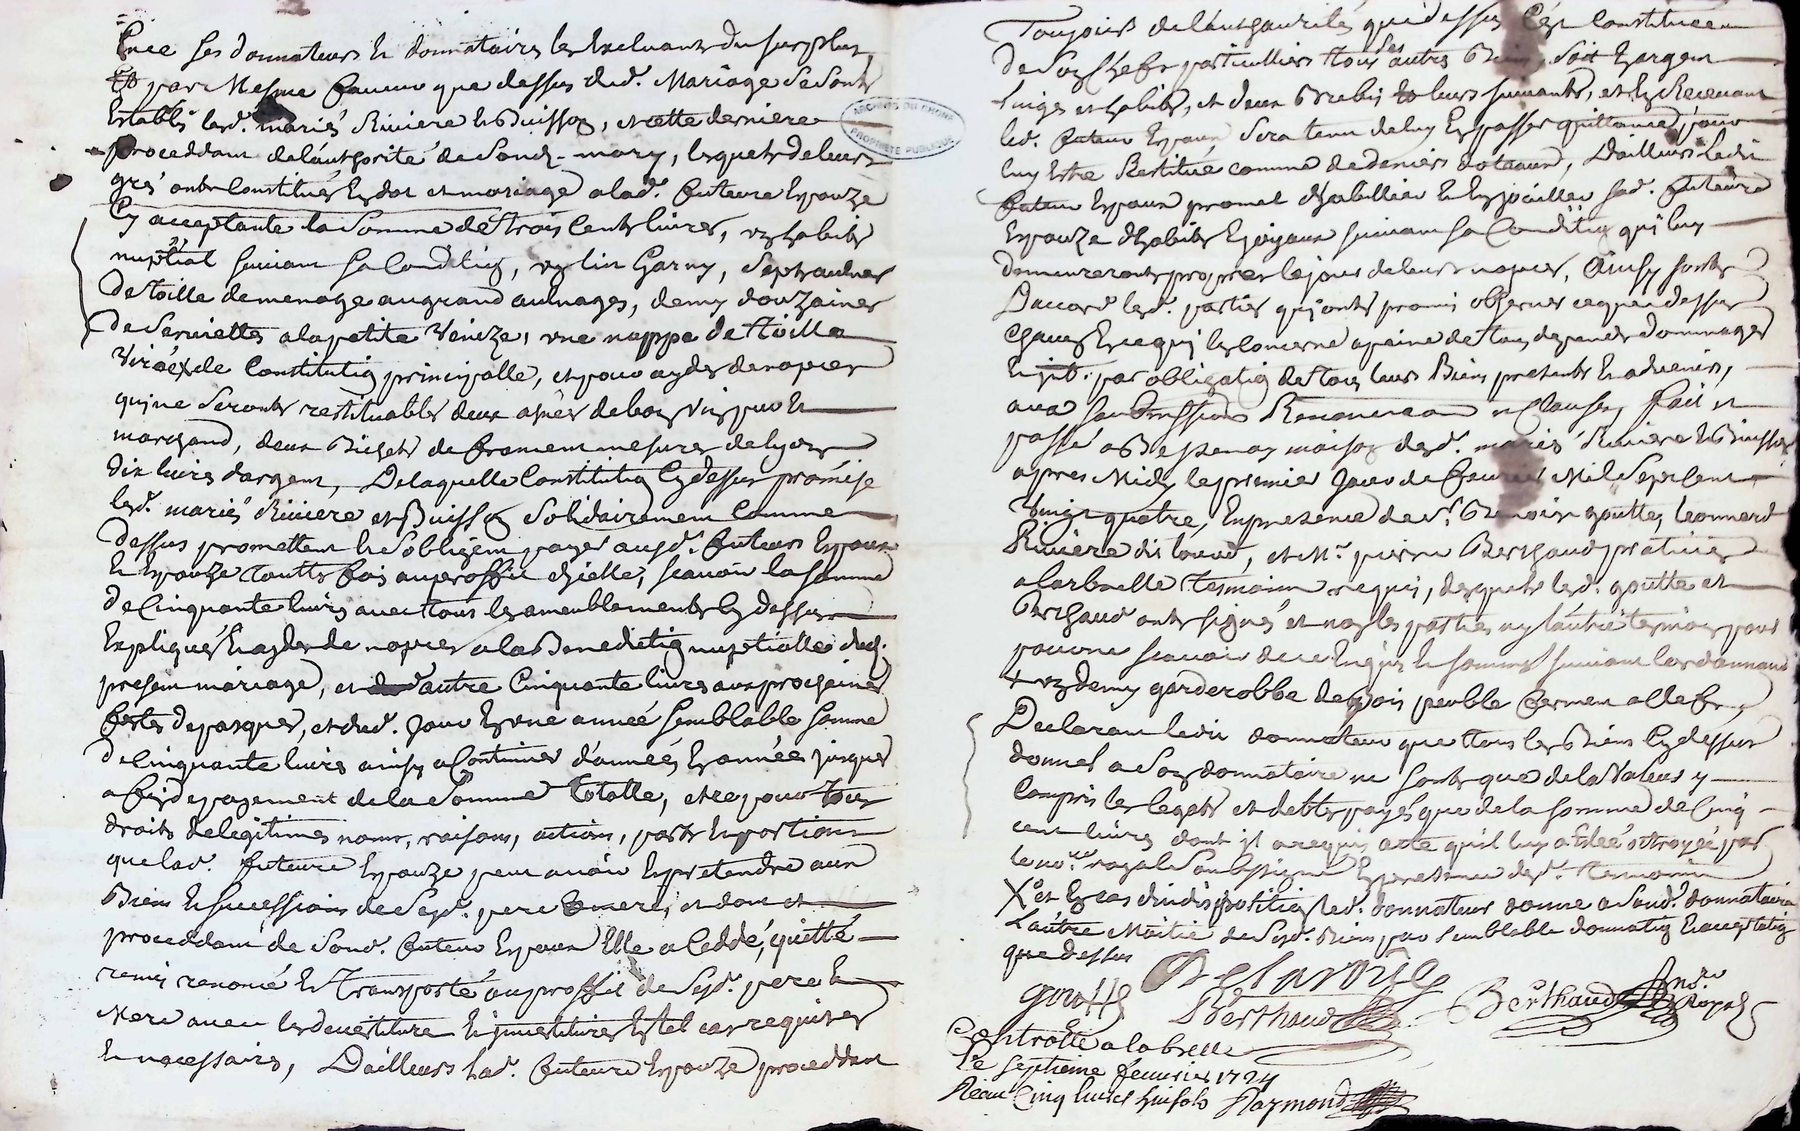 Entre les donnateurs et donnataires les excluants du surplus
Et par mesme faveur que dessus dud. mariage se sont
establi lesd. mariés Riviere et Buisson, et cette derniere
proceddant de l'authorité de sond. mary, lesquels de leurs
gres ont constitués en dot et mariage a lad. future espouze
Cy acceptante la somme de trois cents livres, un habits
nuptial suivant sa condition, un lin garny, sept aulnes
de toille de menage au grand aulnages, demy douzaines
de serviettes a la petite Venize, une nappe de toille
de constitution principalle, et pour ayder de nopces
qui ne seront restituables deux asnés de bon vin pur et
marchand, deux Bichets de froment mesure de lyon
dix livres d'argent, De laquelle constitution cy dessus promise
lesd. mariés Riviere et Buisson solidairement comme
dessus promettent et s'obligent payer auxd. futeurs espoux
et espouze toutte fois au proffit d'icelle, scavoir la somme
de cinquante livres avec tous les ameublements cy dessus
expliqués et ayde de nopces a la Benediction nuptialle dud.
present mariage, et d'autre cinquante livres aux prochaines
festes de pasques, et dud. jour en une année semblable somme
de cinquante livres ainsy a continuer d'années en années jusques
a fin de payement de la somme totalle, et ce pour tous
droits de legitimes noms, raisons, actions, parts et portions
que lad. future espouze peut avoir et pretendre aux
Biens et successions de sesd. pere et mere, et dont et
proceddant de sond. futeur espoux Elle a ceddé, quitté
remis renoncé et transporté au proffit de sesd. pere et
mere avec les devestiture et investitures en tel cas requises
et necessaires, D'ailleurs lad. future espouze proceddant
Toujours de l'authaurités que dessus s'est constituée
de son chefs particulliers tous ses autres Biens soit en argent
linges et habits, et deux Brebis et leurs suivants, et en recevant
led. futeur espoux sera tenu de luy en passer quittance pour
luy estre restitué comme de deniers doteaux, D'ailleurs ledit
futeur espoux promet d'habiller et enjoüailler sad. future
espouze d'habits et joyaux suivant sa condition qui luy
demeureront propres le jour de leurs nopces, Ainsy sont
D'accord lesd. parties qui ont promis observer ce que dessus
chacun en ce qui les concerne a peine de tous depends dommages
intt. par obligation de tous leurs Biens presents et advenir,
avec soubmissions Renonciation et clauses, fait et
passé a Bessenay maison desd. mariés Riviere et Buisson
apres midy le premier jour de fevrier mil sept cent
vingt quatre, En presence de sr. Benoist goutte, leonnard
Riviere dit loued, et Mr. pierre Berthaud praticien
a larbrelle tesmoins requis, desquels led. goutte et
Berthaud ont signés et non les parties ny l'autre tesmoin pour
+ un demy garderobbe de bois peuble ferment a clefs,
Declarant ledit donnateur que tous les Biens cy dessus
donnés a son donnataire ne sont que de la valeur y
compris les legats et debtes payés que de la somme de cinq
cent livres dont il a requis acte qu'il luy a esté octroyée par
le nore royal soubsigné en presence desd. tesmoins
X et en cas d'indisposition led. donnateur donne a sond. donnataire
l'autre Moitié de sesd. Biens par semblable donnation et acceptation
que dessus
goutte
Berthaud
Berthaud nore Royal
Controllé a la brelle
Le septieme fevrier 1724
Raymond